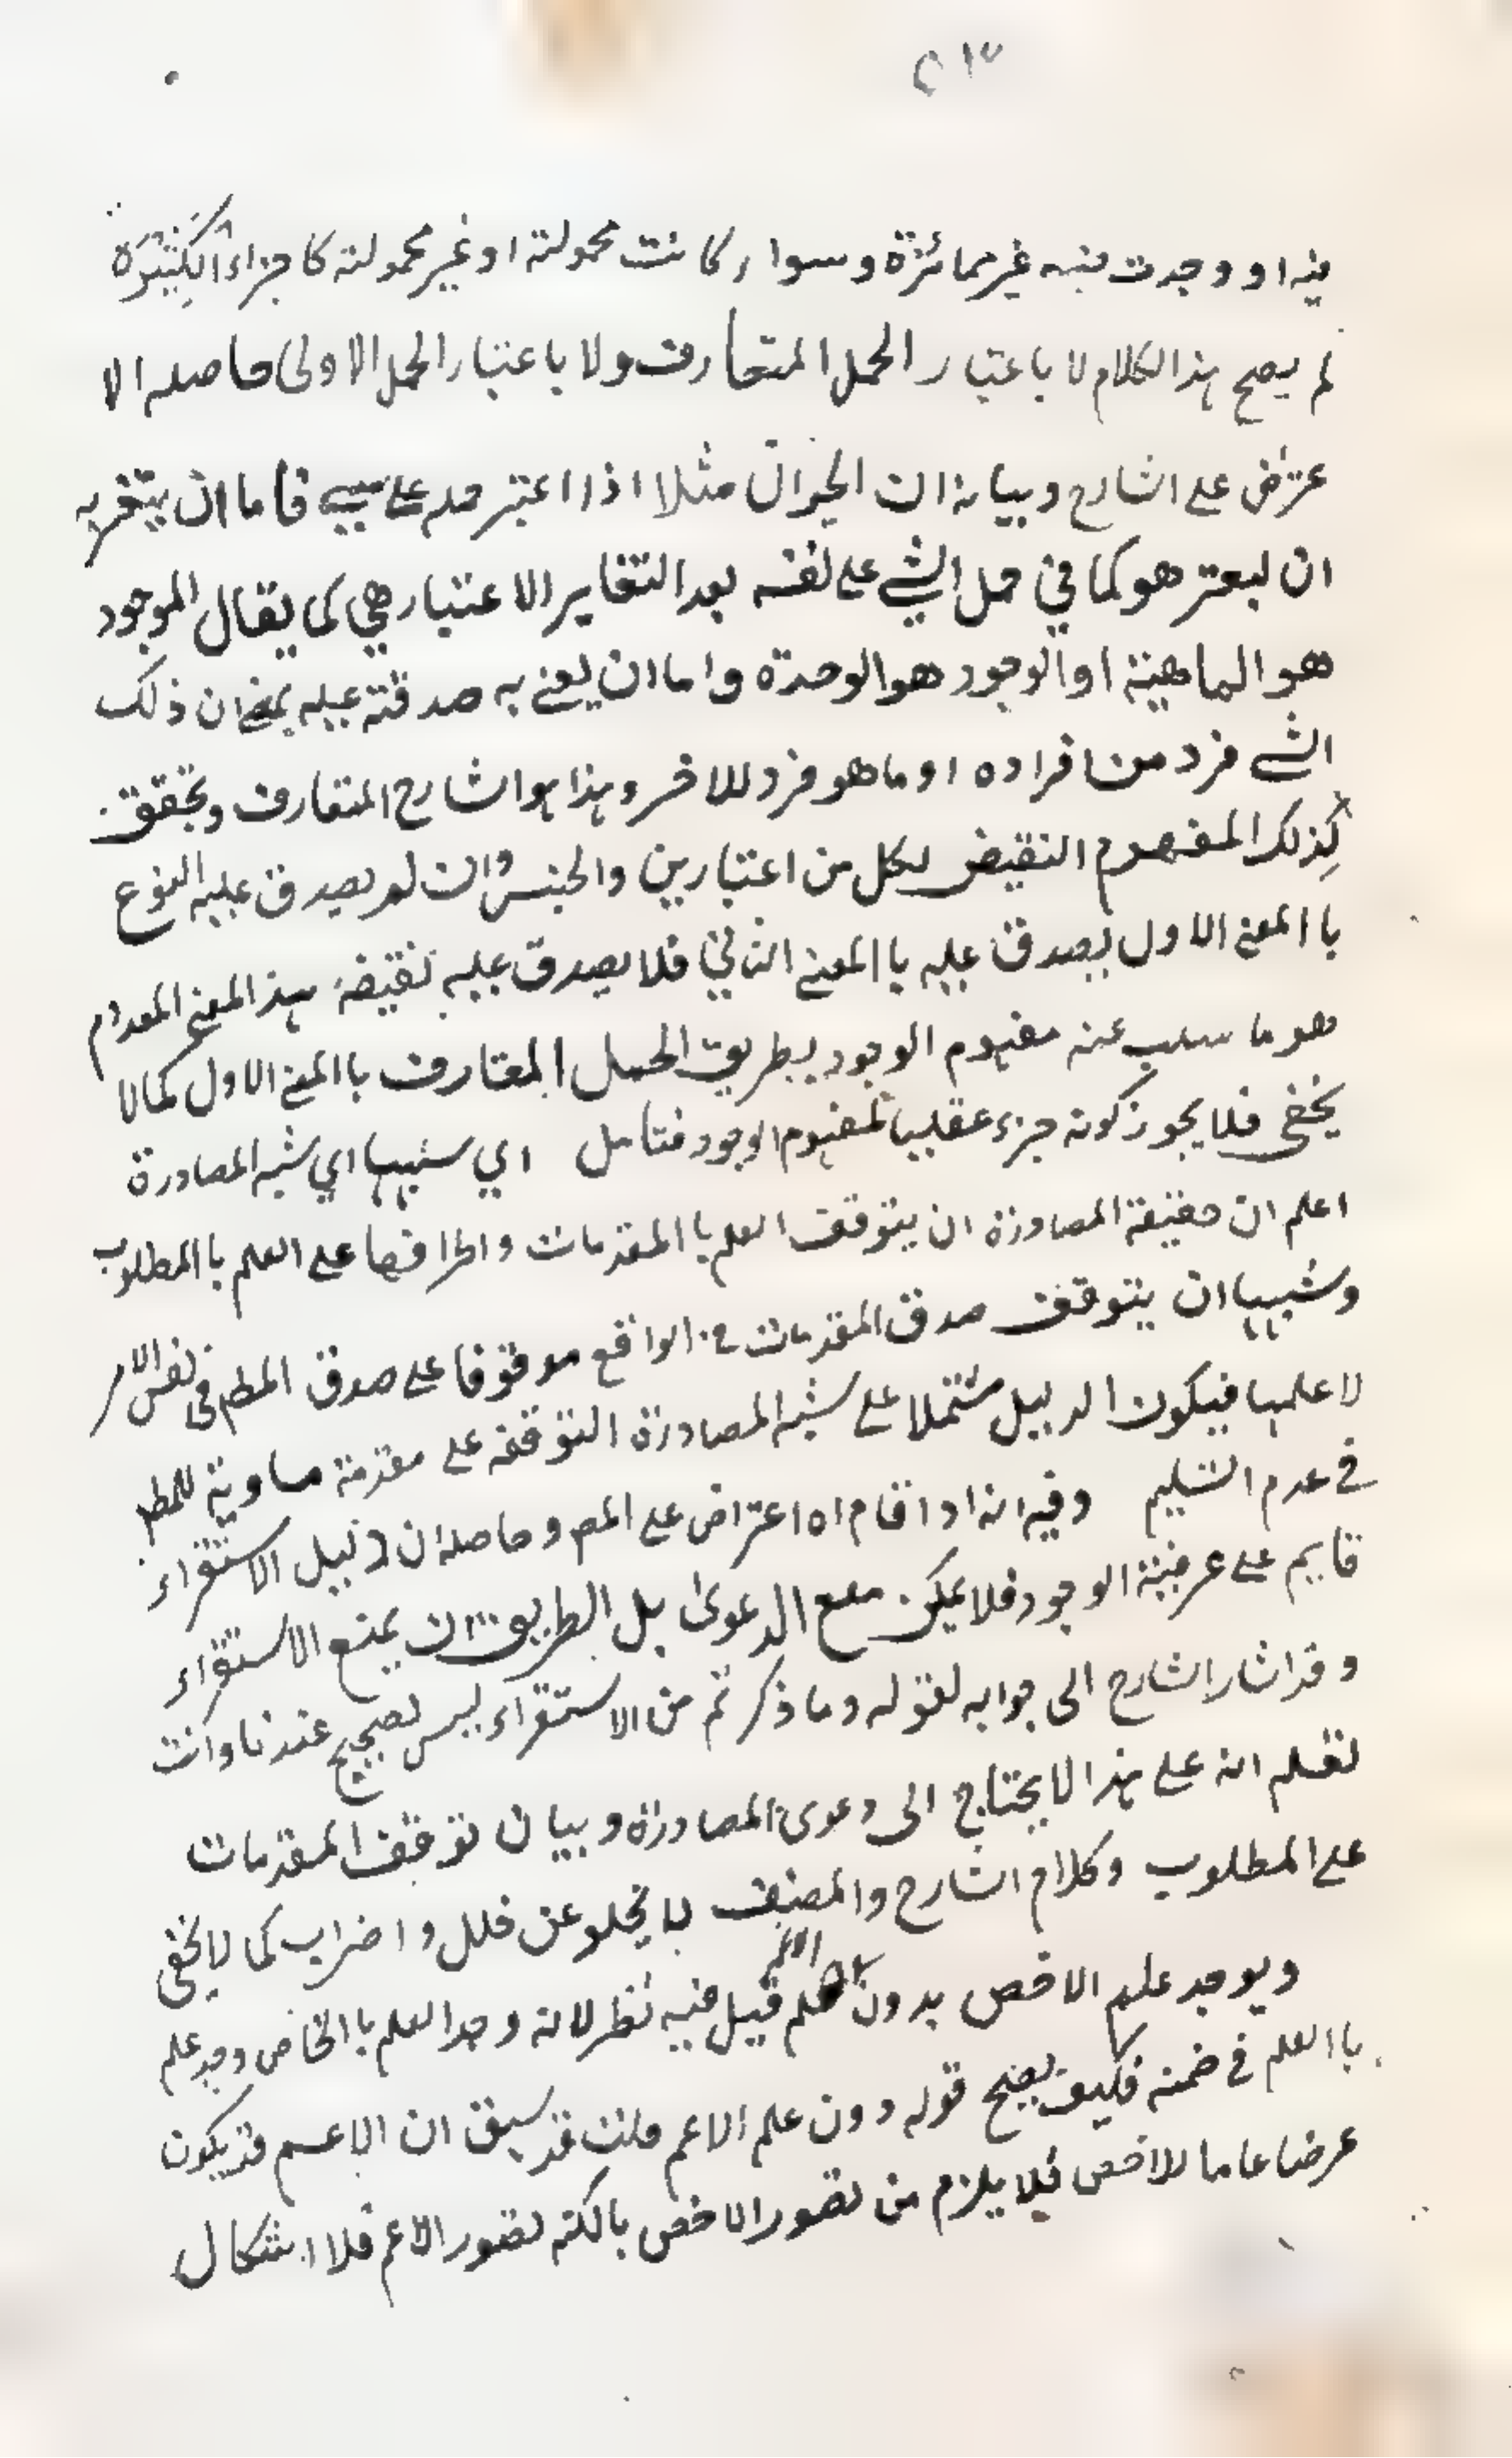 ٥١٣
فيه او وجدت فيه غير ممائزة وسواء كانت محمولة او غير محمولة كاجزاء الكثيرة
لم يصح هذا الكلام لا باعتبار الحمل المتعارف ولا باعتبار الحمل الاولى حاصله الا
عتراض على الشارح وبيانه ان الحيوان مثلا اذا اعتبر حمله على فاما ان به
ان هو كما في حمل الشي على نفسه بعد التغاير الاعتبارهي كما يقال الموجود
هو الماهية او الوجود هو الوحدة واما ان يعني به صدقته عليه بمعنى ان ذلك
الشے فرد من افراده او ما هو فرد للاخر وهذا هو الشارح المتعارف وتحقق
كذلك المفهوم النقيض لكل من اعتبارين والجنس وان لم يصدق عليه النوع
با المعنى الاول يصدق عليه با المعنى الثاني فلا يصدق عليه نقيضه بهذا المعنى المعدوم
هو ما سلب عنه مفهوم الوجود بطريق الحمل المتعارف با المعنى الاول كما لا
يخفى فلا يجوز كونه جزء عقليا لمفهوم الوجود فتامل اي سبهها اي شبه المصادرة
اعلم ان حقيقة المصادرة ان يتوقف العلم با المقدمات واطرافها على العلم با المطلوب
وشبهها ان يتوقف صدق المقدمات في الواقع موقوفا على صدق المطم في نفس الامر
لا علمها فيكون الدليل مشتملا على شبه المصادرة التوقفه على مقدمة مساوية للمطم
في عدم التسليم وفيه انه اذا اقام اه اعتراض على المص وحاصله ان دليل الاستقراء
قايم على عرفية الوجود فلا يمكن منع الدعوى بل الطريق ان يمنع الاستقراء
وقد اشار الشارح الى جوابه لقوله وما ذكر ثم من الاستقراء ليس بصحيح عندنا وانت
تعلم انه على هذا لا يحتاج الى دعوى المصادرة وبيان توقف المقدمات
على المطلوب وكلام الشارح والمصنف لا يخلو عن خلل واضراب كما لا يخفى
ويوجد علم الاخص بدون علم الاعم قيل فيه نظر لانه وجد العلم با الخاص وجد علم
با العلم في ضمنه فكيف يصح قوله دون علم الاعم قلت قد سبق ان الاعم قد يكون
عرضا عاما للاخص فلا يلزم من تصور الاخص بالكنه تصور الاعم فلا اشكال